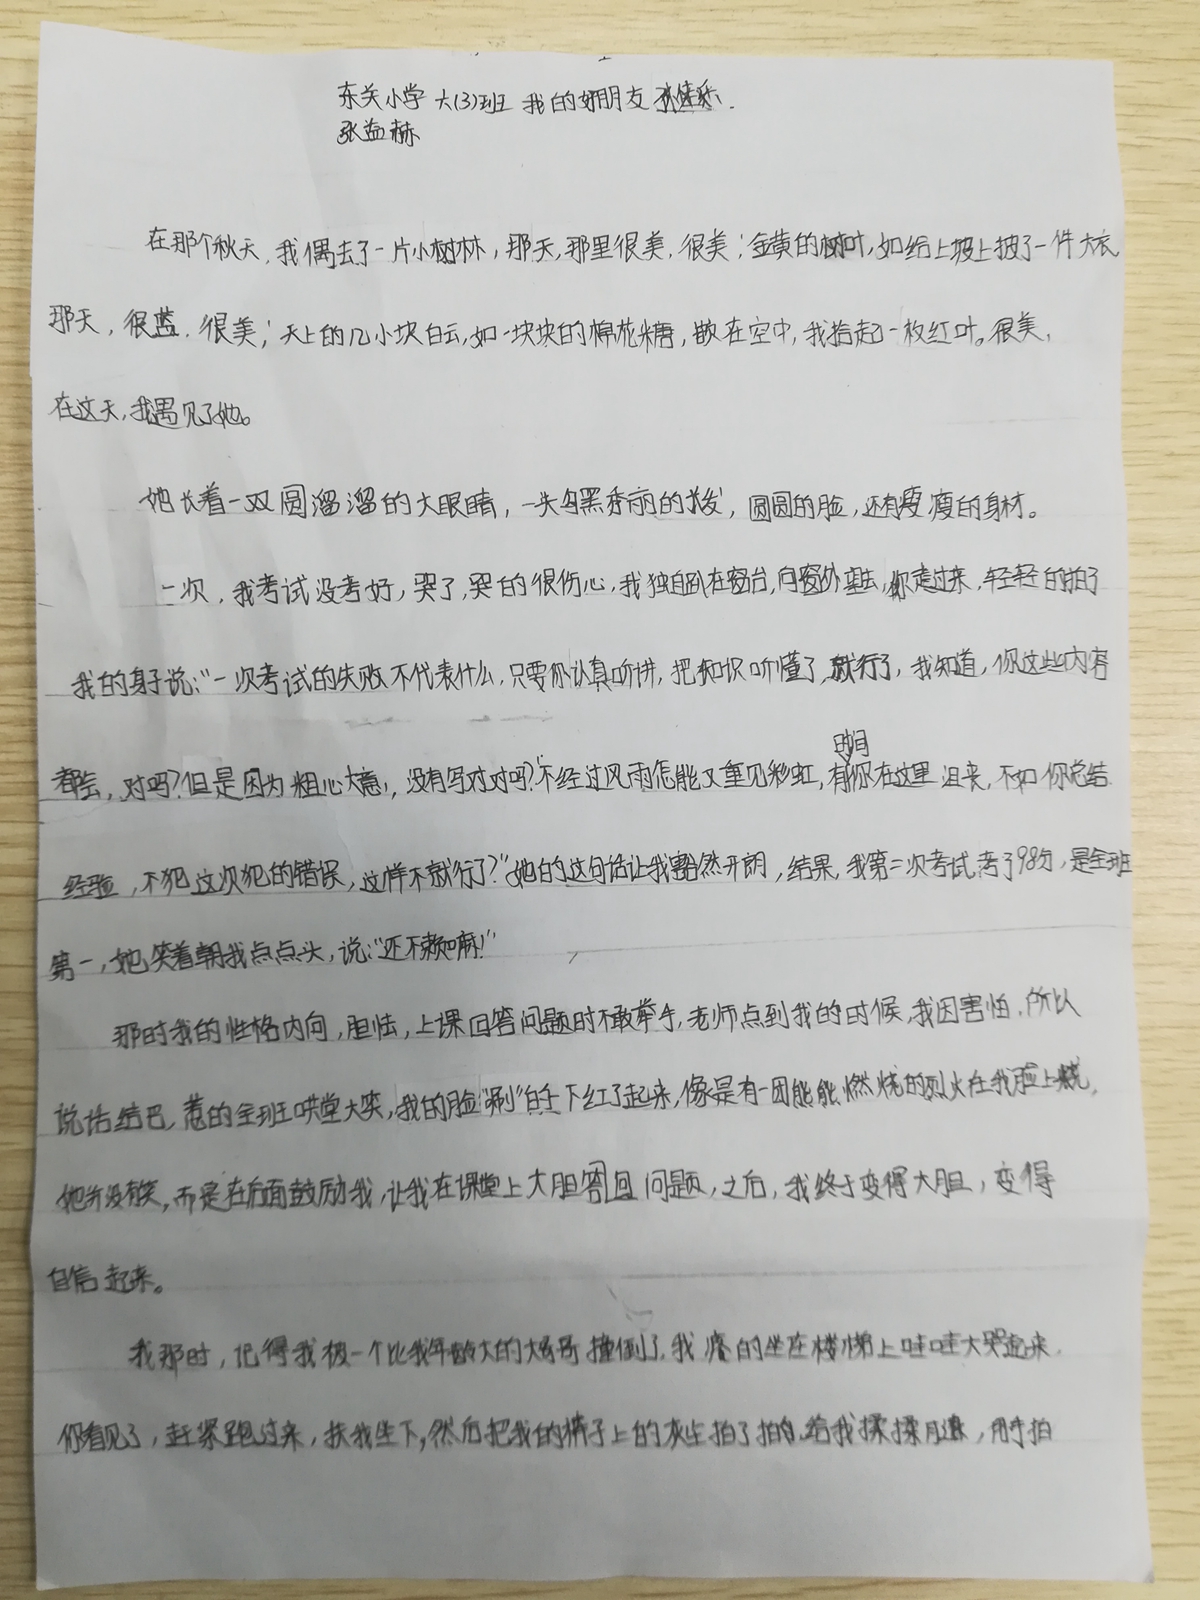 东关小学 六(3)班 我的好朋友
张益赫
在那个秋天,我偶去了一片小树林,那天,那里很美,很美;金黄的树叶,如给上坡上披了一件大衣
那天,很蓝.很美;天上的几小块白云,如一块块的棉花糖,散在空中,我拾起一枚红叶。很美,
在这天,我遇见了她。
她长着一双圆溜溜的大眼睛,一头乌黑秀丽的头发,圆圆的脸,还有瘦瘦的身材。
一次,我考试没考好,哭了,哭的很伤心,我独自趴在窗台,向窗外望去,你走过来,轻轻的拍了
我的身子说:“一次考试的失败不代表什么,只要你认真听讲,把知识听懂了,就行了,我知道,你这些内容
时间
都会,对吗?但是因为粗心大意,没有写对对吗?不经过风雨怎能又重见彩虹,有你在这里沮丧,不如你总结
经验,不犯这次犯的错误,这样不就行了?”她的这句话让我豁然开朗,结果,我第二次考试,考了98分,是全班
第一,她笑着朝我点点头,说:“还不赖嘛!”
那时我的性格内向,胆怯,上课回答问题时不敢举手,老师点到我的时候,我因害怕,所以
说话结巴,惹的全班哄堂大笑,我的脸“唰”的一下红了起来,像是有一团熊熊燃烧的烈火在我脸上烧,
她并没有笑,而是在后面鼓励我,让我在课堂上大胆答回问题,之后,我终于变得大胆,变得
自信起来。
我那时,记得我被一个比我年龄大的大哥哥撞倒了,我疼的坐在楼梯上哇哇大哭起来,
你看见了,赶紧跑过来,扶我坐下,然后把我的裤子上的灰尘拍了拍,给我揉揉腿,用手拍